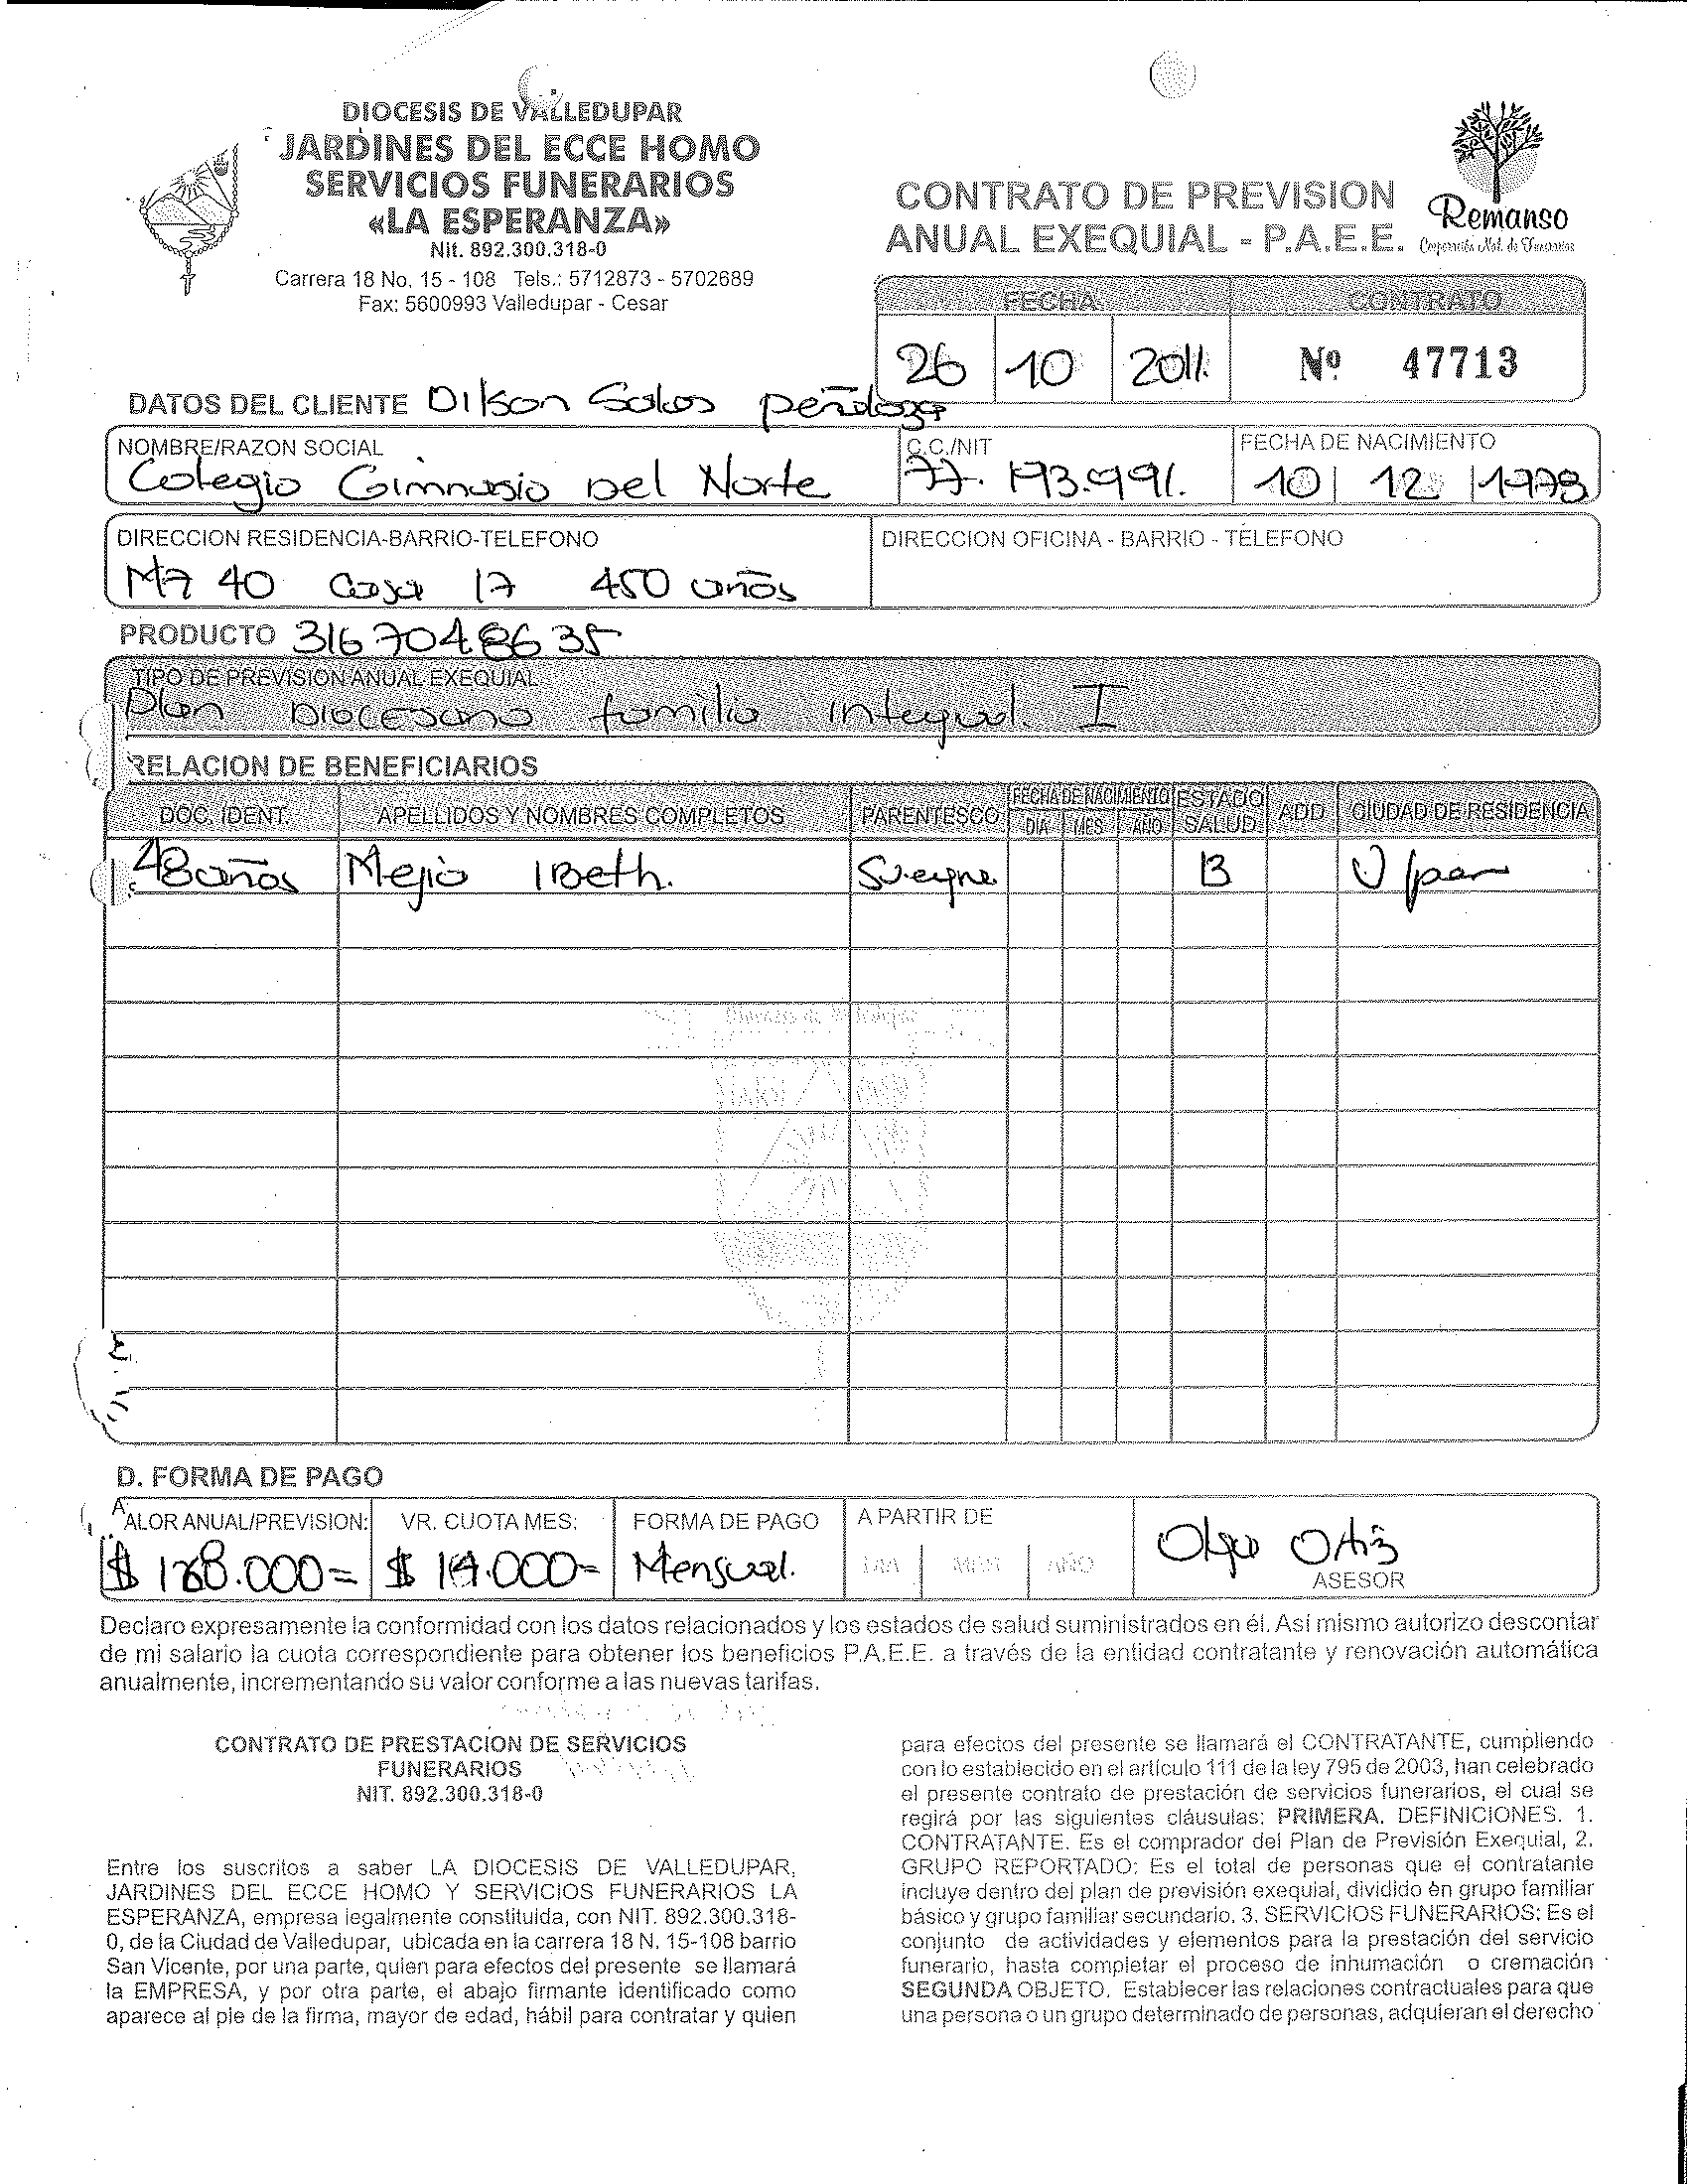 DIOCESIS DE VALLEDUPAR
JARDINES DEL ECCE HOMO
SERVICIOS FUNERARIOS
«LA ESPERANZA»
Nit. 892.300.318-0
Carrera 18 No. 15 - 108 Tels.: 5712873 - 5702689
Fax: 5600993 Valledupar - Cesar
CONTRATO DE PREVISION
ANUAL EXEQUIAL - P.A.E.E.
Remanso
FECHA CONTRATO
26 10 2011. Nº 47713
DATOS DEL CLIENTE Dilson Salas peñaloza
NOMBRE/RAZON SOCIAL C.C./NIT FECHA DE NACIMIENTO
Colegio Gimnasio Del Norte 77. 193.991. 10 12 1978
DIRECCION RESIDENCIA-BARRIO-TELEFONO DIRECCION OFICINA - BARRIO - TELEFONO
Mz 40 Casa 17 450 años
PRODUCTO 3167048635
TIPO DE PREVISION ANUAL EXEQUIAL
Plan Diocesano familia integral. I
RELACION DE BENEFICIARIOS
DOC. IDENT. APELLIDOS Y NOMBRES COMPLETOS PARENTESCO FECHA DE NACIMIENTO ESTADO SALUD ADD CIUDAD DE RESIDENCIA
DIA MES AÑO
48 años Mejia IBeth. Suegra B V/par
D. FORMA DE PAGO
ALOR ANUAL/PREVISION: VR. CUOTA MES: FORMA DE PAGO A PARTIR DE
$ 168.000= $ 14.000= Mensual. DIA MES AÑO Olga Ortiz
ASESOR
Declaro expresamente la conformidad con los datos relacionados y los estados de salud suministrados en él. Así mismo autorizo descontar
de mi salario la cuota correspondiente para obtener los beneficios P.A.E.E. a través de la entidad contratante y renovación automática
anualmente, incrementando su valor conforme a las nuevas tarifas.
CONTRATO DE PRESTACION DE SERVICIOS
FUNERARIOS
NIT. 892.300.318-0
Entre los suscritos a saber LA DIOCESIS DE VALLEDUPAR,
JARDINES DEL ECCE HOMO Y SERVICIOS FUNERARIOS LA
ESPERANZA, empresa legalmente constituida, con NIT. 892.300.318-
0, de la Ciudad de Valledupar, ubicada en la carrera 18 N. 15-108 barrio
San Vicente, por una parte, quien para efectos del presente se llamará
la EMPRESA, y por otra parte, el abajo firmante identificado como
aparece al pie de la firma, mayor de edad, hábil para contratar y quien
para efectos del presente se llamará el CONTRATANTE, cumpliendo
con lo establecido en el artículo 111 de la ley 795 de 2003, han celebrado
el presente contrato de prestación de servicios funerarios, el cual se
regirá por las siguientes cláusulas: PRIMERA. DEFINICIONES. 1.
CONTRATANTE. Es el comprador del Plan de Previsión Exequial, 2.
GRUPO REPORTADO: Es el total de personas que el contratante
incluye dentro del plan de previsión exequial, dividido en grupo familiar
básico y grupo familiar secundario. 3. SERVICIOS FUNERARIOS: Es el
conjunto de actividades y elementos para la prestación del servicio
funerario, hasta completar el proceso de inhumación o cremación
SEGUNDA OBJETO. Establecer las relaciones contractuales para que
una persona o un grupo determinado de personas, adquieran el derecho